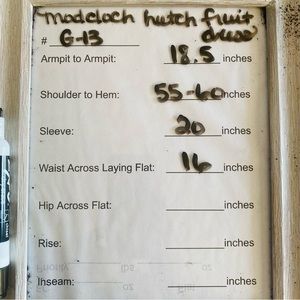 Modcloth hutch fruit
dress
# G-13
Armpit to Armpit: 18.5 inches
Shoulder to Hem: 55-60 inches
Sleeve: 20 inches
Waist Across Laying Flat: 16 inches
Hip Across Flat: inches
Rise: inches
Inseam: inches